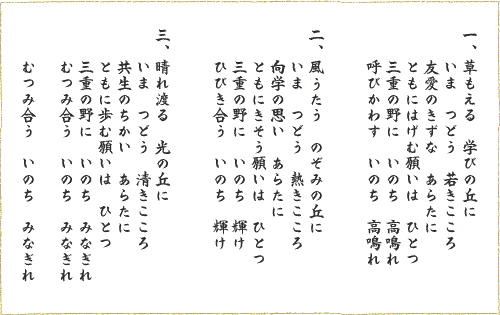 一、草もえる　学びの丘に
いま　つどう　若きこころ
友愛のきずな　あらたに
ともにはげむ願いは　ひとつ
三重の野に　いのち　高鳴れ
呼びかわす　いのち　高鳴れ
二、風うたう　のぞみの丘に
いま　つどう　熱きこころ
向学の思い　あらたに
ともにきそう願いは　ひとつ
三重の野に　いのち　輝け
ひびき合う　いのち　輝け
三、晴れ渡る　光の丘に
いま　つどう　清きこころ
共生のちかい　あらたに
ともに歩む願いは　ひとつ
三重の野に　いのち　みなぎれ
むつみ合う　いのち　みなぎれ
むつみ合う　いのち　みなぎれ